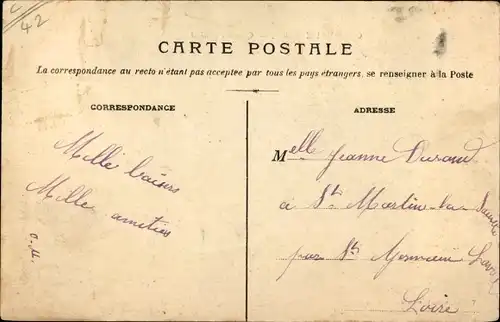 42
CARTE POSTALE
La correspondance au recto n'étant pas acceptée par tous les pays étrangers, se renseigner à la Poste
CORRESPONDANCE
ADRESSE
Mille baisers
Mille amitiés
Melle Jeanne Durand
à St Martin-la-Sauveté
par St Germain Laval
Loire